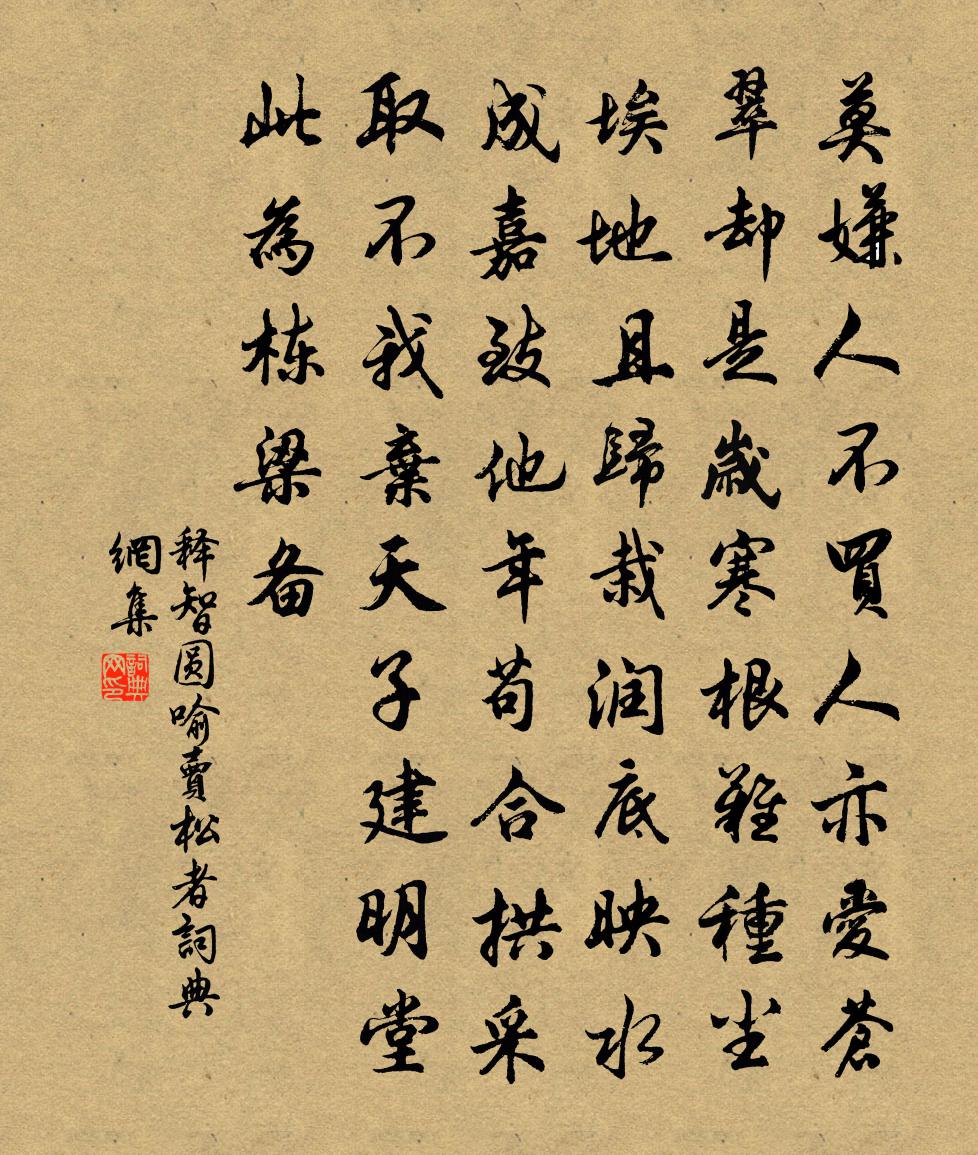 莫嫌人不買人亦愛蒼
翠却是歲寒根難種尘
埃地且歸栽润底映水
成嘉致他年苟合拱采
取不我棄天子建明堂
此為栋梁备
释智圆喻賣松者詞典
網集
詞典
网印